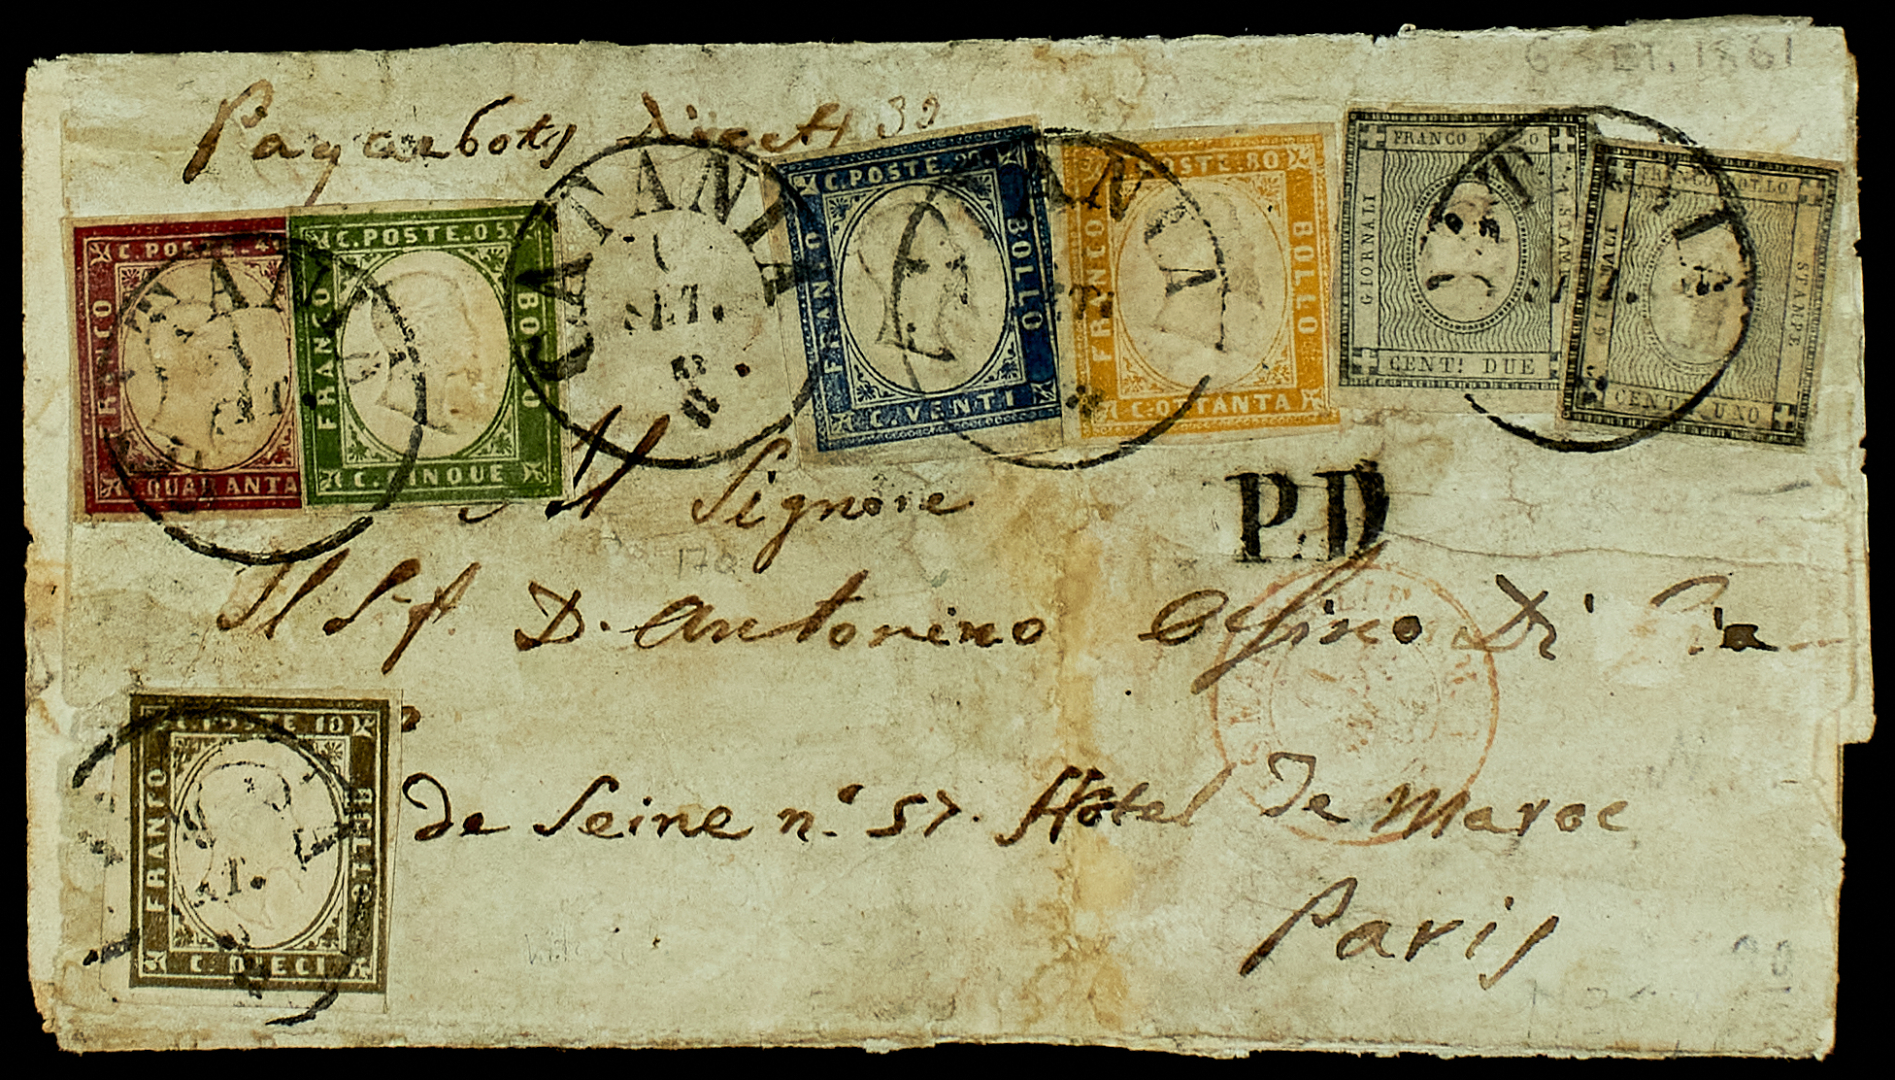 6 SET. 1861
Paq
32
C. POSTE. 4
FRANCO
C. QUARANTA
C. POSTE. 05
FRANCO
BOLLO
C. CINQUE
CATANIA
6
SET.
C. POSTE. 20.
FRANCO
BOLLO
C. VENTI
C. POSTE. 80
FRANCO
BOLLO
C. OTTANTA
FRANCO BOLLO
GIORNALI
STAMPE
CENT! DUE
FRANCO BOLLO
GIORNALI
STAMPE
CENT! UNO
P.D
Al Signore
170
Il Sig. D. Antonino Di
C. POSTE 10
FRANCO
BOLLO
C. DIECI
de Seine n.° 57. Hôtel de Maroc
Paris